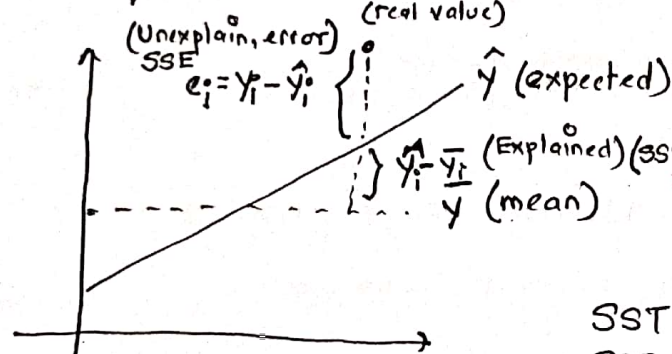 (real value)
(Unexplain, error)
SSE
eᵢ = yᵢ - ŷᵢ
ŷ (expected)
ŷᵢ - ȳᵢ (Explained) (SS
ȳ (mean)
SST